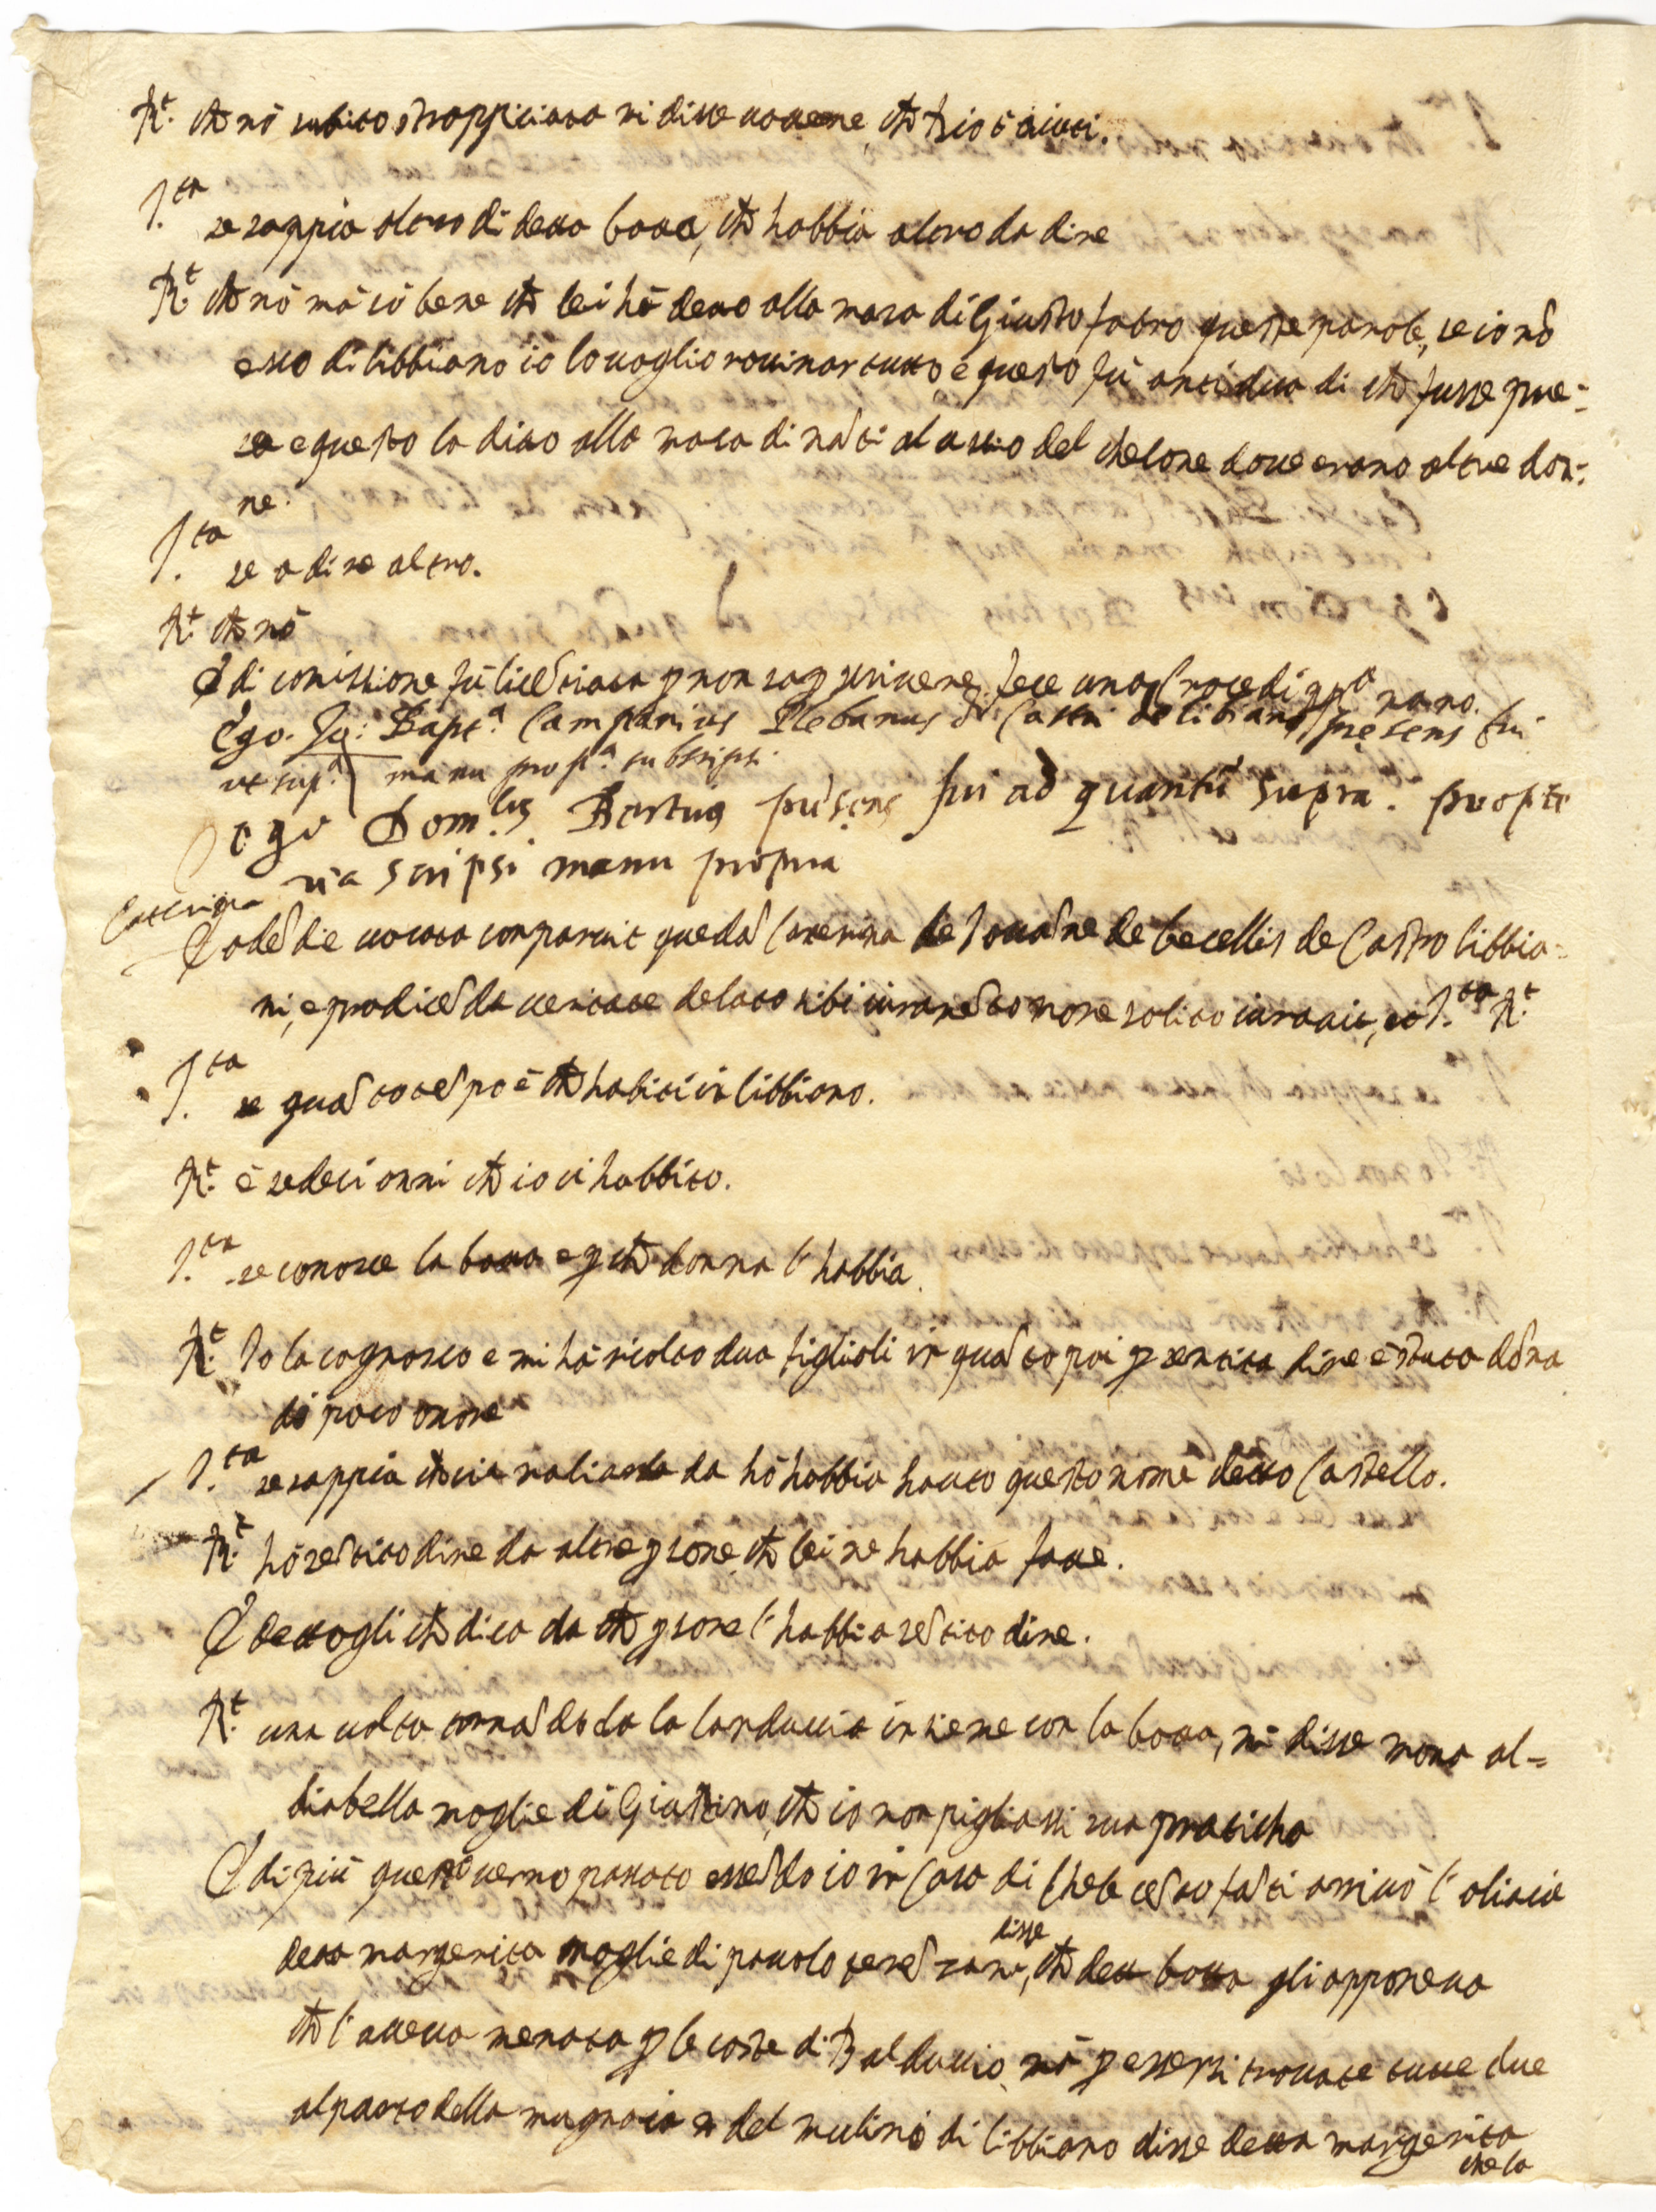 R.t che nō subito stroppicciata mi disse vattene, che Dio t'aiuti.
I.ta se sappia altro di detta botta, che habbia altro da dire
R.t che nō mà sò bene che lei hà detto alla mora di Giusto fabro queste parole, se io nō
esco di libbiano io lo voglio rovinar tutto, e questo fù anti dua di che fusse pre=
sa e questo la disse alla masa di nāti al uscio del chelone dove erano altre don=
ne.
I.ta se a dire altro.
R.t che nō
E di comissione fù licētiata p non sap scrivere fece una Croce di pp.a mano.
Ego Jo: Bapt.a Campanius Plebanus Castri de libiano presens fui
ut sup.a manu prop.a subscripsi.
Ego Dom.cus Bartius presens fui ad quantū supra. propte
rea scripsi manu propria
Caterina
Eadē die vocata comparuit quedā Caterina de Jouāne de becellis de Castro libbia=
ni, e pro dicēda veritate delato sibi iuramēto more solito iuravit, et I.ta R.t
I.ta se quāto tēpo è che habiti in libbiano.
R.t è sedeci anni che io ci habbito.
I.ta se conosce la botta e p che donna l'habbia.
R.t Io la cognosco e mi hà ricolto dua figlioli in quāto poi p sentita dire è stata dōna
di poco onore
I.ta se sappia che sia maliarda da hō habbia hauto questo nome detto Castello.
R.t hò sētito dire da altre psone che lei ne habbia fatte.
E dettogli che dica da che psone l'habbia sētito dire.
R.t una volta tornādo da la larduccia insieme con la botta, mi disse mona al=
diabella moglie di Giustino, che io non pigliassi sua praticha
E di più questo verno passato essēdo io in Casa di Chele cēto fāti arrivò l' oliaia
detta margerita moglie di pauolo terēzani, disse che detta botta gli apponeva
che l'aveva menata p le coste di Balduccio, mà p essersi trovate tutte due
al passo della mugnaia e del mulino di libbiano disse detta margerita
che la